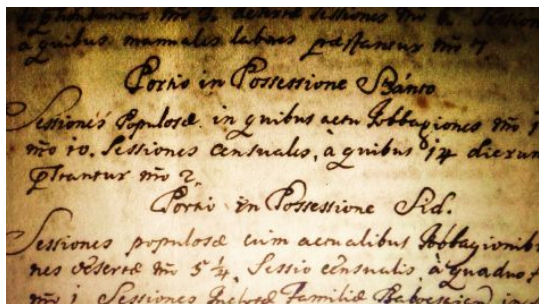 sessiones nro 6. Sessio
a quibus manuales labores præstantur nro 7.
Portio in Possessione Szánto
Sessiones Populosæ in quibus actu Jobbagiones nro
nro 10. Sessiones censuales, a quibus 14 dierum
nro 2.
Portio in Possessione Sid.
Sessiones populosæ cum actualibus Jobbagionib
nes desertæ nro 5 1/4. Sessio censualis, a qua duo
nro 1 Sessiones Familiæ